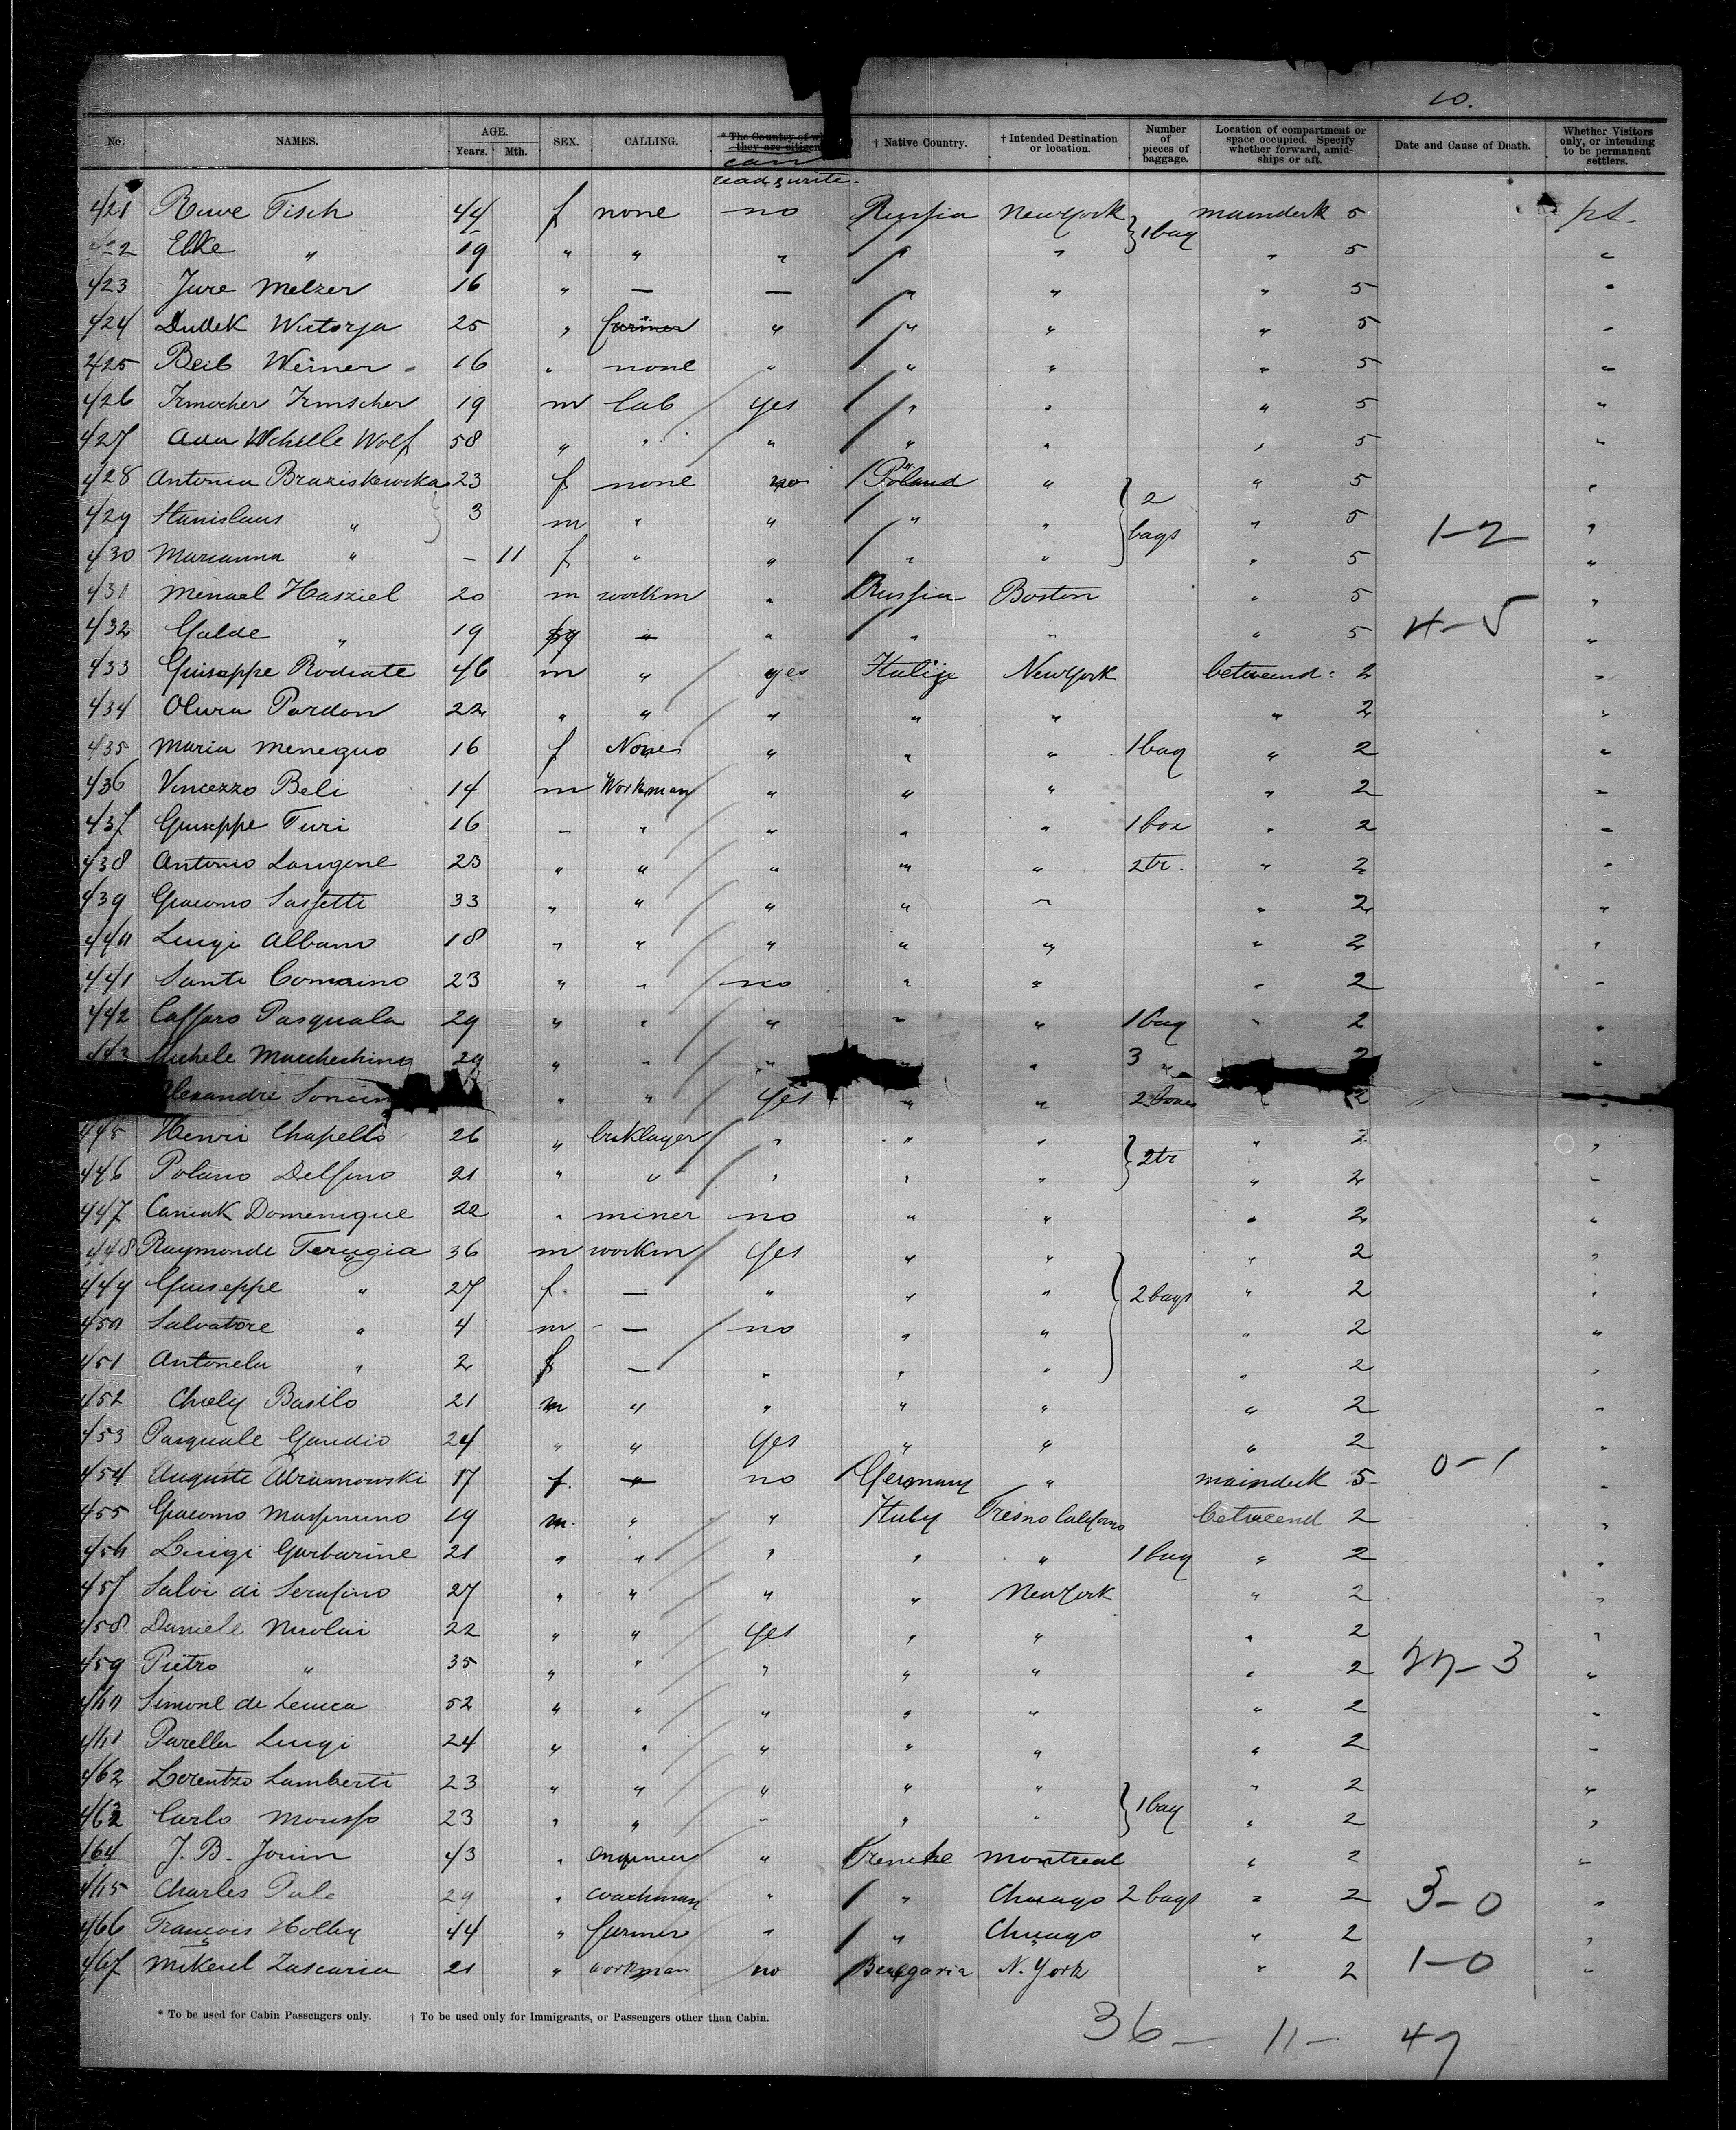 10.
No. NAMES. AGE. Years. Mth. SEX. CALLING. * The Country of they are citizen can read & write. † Native Country. † Intended Destination or location. Number of pieces of baggage. Location of compartment or space occupied. Specify whether forward, amidships or aft. Date and Cause of Death. Whether Visitors only, or intending to be permanent settlers.
421 Ruwe Fisch 44 f none no Russia New York } 1 bag maindeck 5
422 Elke " 19 " " " " " " 5 "
423 Jure Melzer 16 " — — " " " 5 "
424 Dudek Wictorja 25 " farmer " " " " 5 "
425 Beib Weiner 16 " none " " " " 5 "
426 Irmscher 19 m lab yes " " " 5 "
427 Wolf 58 " " " " " " 5 "
428 Antonia Braziskewska 23 f none no Poland " } 2 bags " 5 "
429 Stanislaus " 3 m " " " " " 5 1-2 "
430 Marianna " — 11 f " " " " " 5 "
431 Menael Hasziel 20 m workm " Russia Boston " 5 "
432 Golde " 19 — " " " " 5 4-5 "
433 Guiseppe Rodiate 46 m " yes Italija New York betweend: 2 "
434 Olura Pardon 22 " " " " " " 2 "
435 Maria Meneguo 16 f None " " " 1 bag " 2 "
436 Vincezzo Beli 14 m Workman " " " " 2 "
437 Guiseppe Turi 16 " " " " " 1 box " 2 "
438 Antonio Langene 23 " " " " " 2 tr. " 2 "
439 Giacomo Saffetti 33 " " " " " " 2 "
440 Luigi Albano 18 " " " " " " 2 "
441 Santi Comaino 23 " " no " " " 2 "
442 Caffaro Pasquala 29 " " " " " 1 bag " 2 "
443 Michele 29 " " " " " 3 " 2 "
Alexandre " " yes " " 2 " 2
445 Henri Chapello 26 " bricklayer " " " } 2 tr " 2 "
446 Polano Delfino 21 " " " " " " 2 "
447 Caniak Domenique 22 " miner no " " " 2 "
448 Raymonde Terugia 36 m workm yes " " } 2 bags " 2 "
449 Guiseppe " 27 f. — " " " " 2 "
450 Salvatore " 4 m — no " " " 2 "
451 Antonela " 2 f — " " " " 2 "
452 Basilo 21 m " " " " " 2 "
453 Pasquale Gaudio 24 " " yes " " " 2 "
454 Auguste Abramowski 17 f. — no Germany " maindeck 5 0-1 "
455 Giacomo 19 m. " " Italy Fresno betweend 2 "
456 Luigi Garbarine 21 " " " " " 1 bag " 2 "
457 Salvi di Serafino 27 " " " " New York " 2 "
458 Daniele Nicolai 22 " " yes " " " 2 "
459 Pietro " 35 " " " " " " 2 22-3 "
460 Simone de Leuca 52 " " " " " " 2 "
461 Parella Luigi 24 " " " " " " 2 "
462 Lorentzo Lamberti 23 " " " " " } 1 bag " 2 "
463 Carlo Mousso 23 " " " " " " 2 "
464 J. B. Jouin 43 " engineer " Montreal " 2 "
465 Charles 29 " coachman " " Chicago 2 bags " 2 3-0 "
466 François Holley 44 " farmer " " Chicago " 2 "
467 Mikael Zascaria 21 " workman no N. York " 2 1-0 "
* To be used for Cabin Passengers only. † To be used only for Immigrants, or Passengers other than Cabin.
36— 11— 47